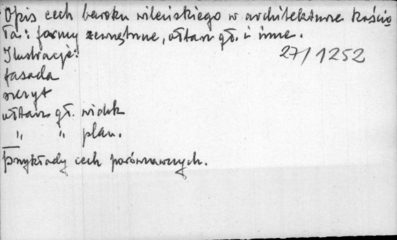 Opis cech baroku wileńskiego w architekturze kościo
ła: formy zewnętrzne, ołtarz gł. i inne.
Ilustracje:
27/1252
fasada
szczyt
ołtarz gł. widok
" " plan.
Przykłady cech porównawczych.